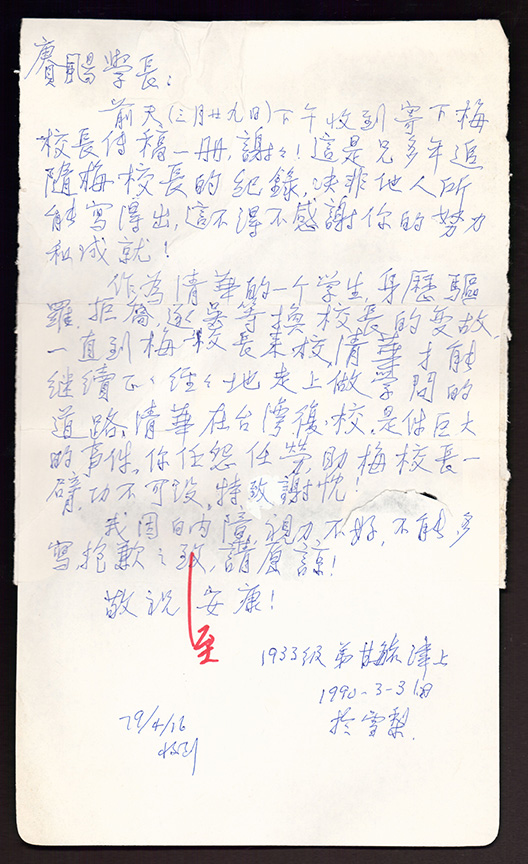 賡颺學長:
前天(三月廿九日)下午收到寄下梅
校長傳稿一册,謝々!這是兄多年追
隨梅校長的紀錄,決非他人所
能寫得出,這不得不感謝你的努力
和成就!
作為清華的一个学生,身歷驅
羅,拒喬,逐吳等換校長的变故,
一直到梅校長來校,清華才能
继續正々經々地走上做学問的
道路,清華在台灣復校,是件巨大
的事件,你任怨任勞,助梅校長一
臂,功不可没,特致謝忱!
我因白内障,視力不好,不能多
寫,抱歉之致,請原諒!
至
敬祝 安康!
1933级 弟 津上
1990-3-31日
於雪梨
79/4/16
收到